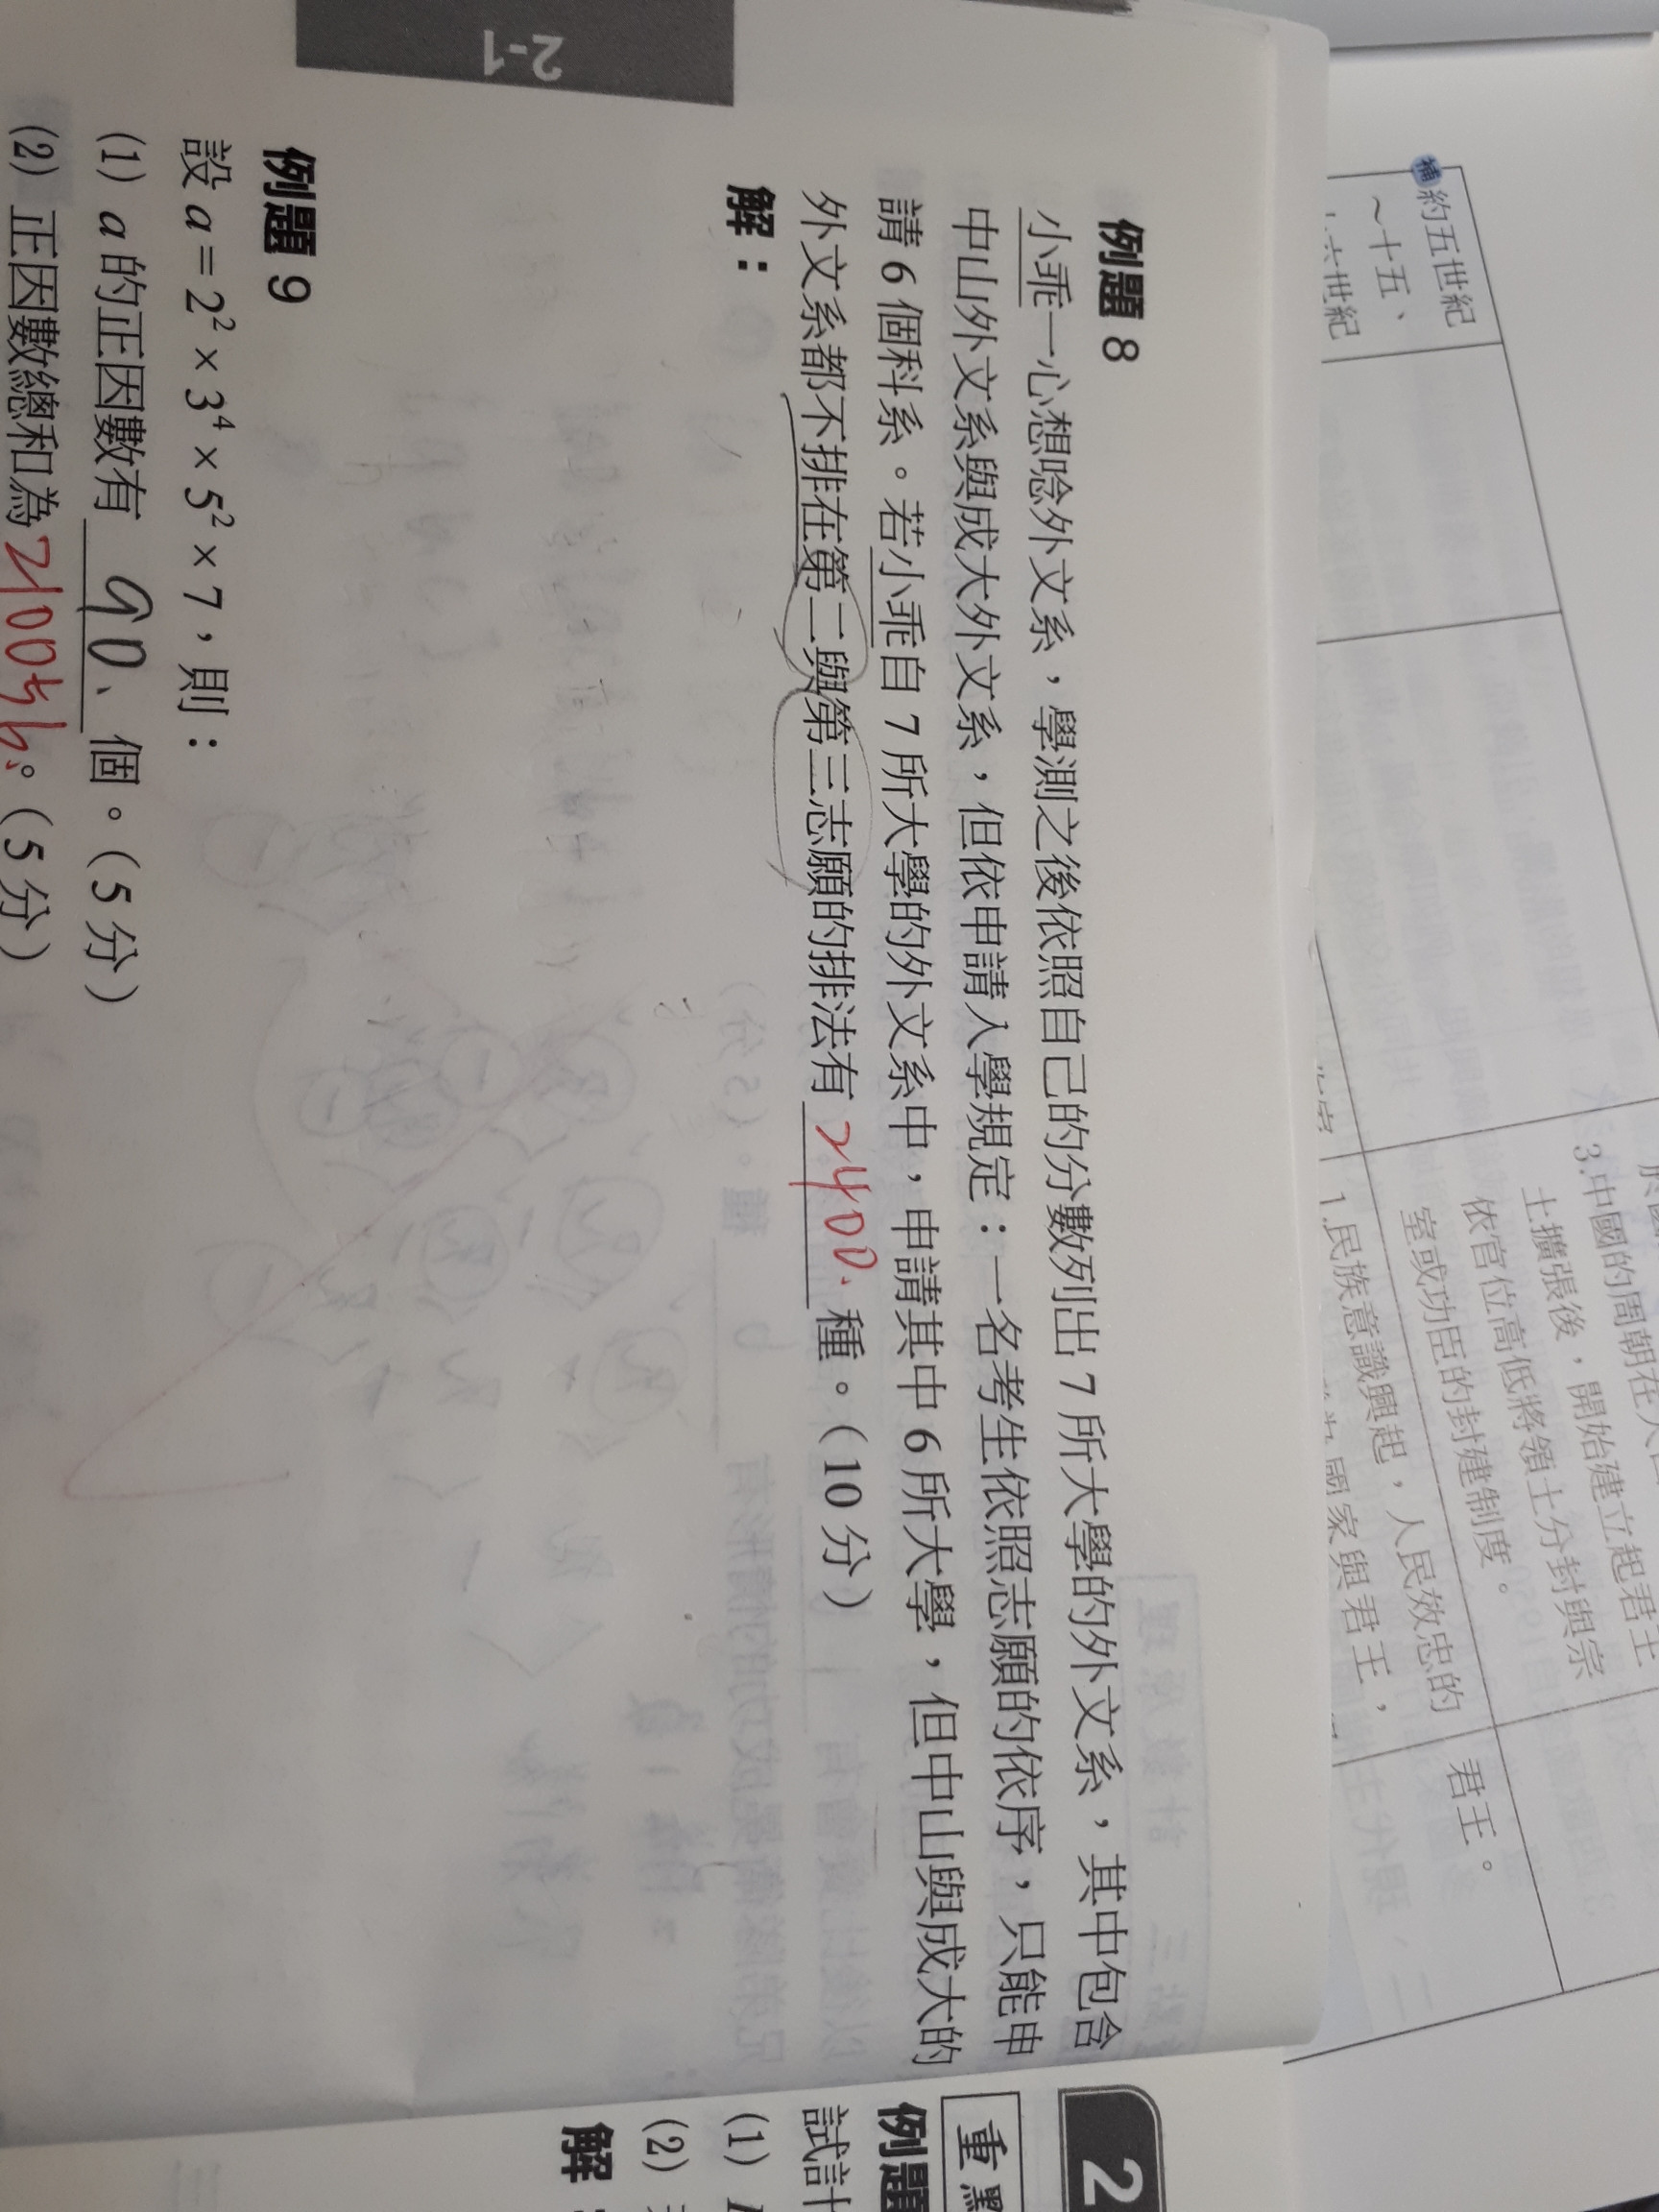 2-1
例題 8
小乖一心想唸外文系，學測之後依照自己的分數列出 7 所大學的外文系，其中包含
中山外文系與成大外文系，但依申請入學規定：一名考生依照志願的依序，只能申
請 6 個科系。若小乖自 7 所大學的外文系中，申請其中 6 所大學，但中山與成大的
外文系都不排在第二與第三志願的排法有 2400 種。(10 分)
解：
例題 9
設 a = 2² × 3⁴ × 5² × 7，則：
(1) a 的正因數有 90 個。(5 分)
(2) 正因數總和為 。(5 分)
補 約五世紀
～十五、
六世紀
3.中國的周朝在
土擴張後，開始建立起君主
依官位高低將領土分封與宗
室或功臣的封建制度。
1.民族意識興起，人民效忠的
國家與君王，
君王。
2
重
例題
試計
(1)
(2)
解：